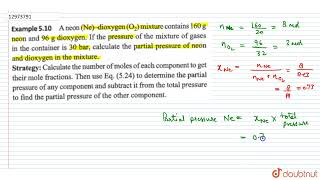 12973791
Example 5.10 A neon (Ne)-dioxygen (O₂) mixture contains 160 g
neon and 96 g dioxygen. If the pressure of the mixture of gases
in the container is 30 bar, calculate the partial pressure of neon
and dioxygen in the mixture.
Strategy: Calculate the number of moles of each component to get
their mole fractions. Then use Eq. (5.24) to determine the partial
pressure of any component and subtract it from the total pressure
to find the partial pressure of the other component.
n Ne = 160/20 = 8 mol
n O₂ = 96/32 = 3 mol
x Ne = n Ne / n Ne + n O₂ = 8 / 8+3
= 8/11 = 0.73
Partial pressure Ne = x Ne × total pressure
= 0.7
doubtnut